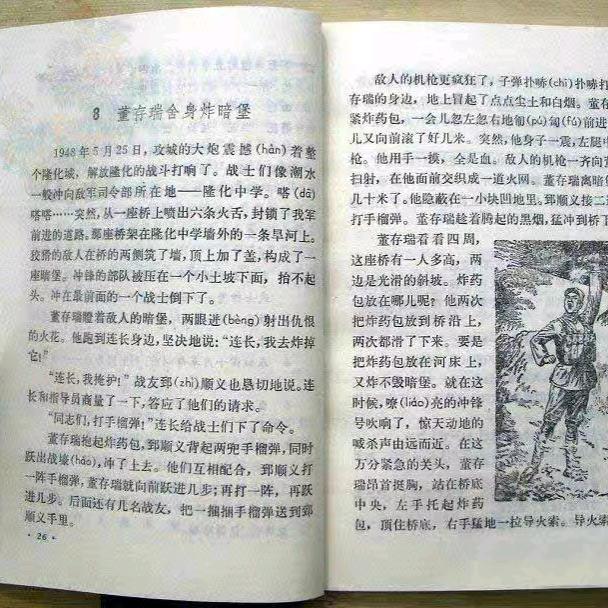 8 董存瑞舍身炸暗堡
1948年5月25日，攻城的大炮震撼(hàn)着整
个隆化城，解放隆化的战斗打响了。战士们像潮水
一般冲向敌军司令部所在地——隆化中学。嗒(dā)
嗒嗒……突然，从一座桥上喷出六条火舌，封锁了我军
前进的道路。那座桥架在隆化中学墙外的一条旱河上。
狡猾的敌人在桥的两侧筑了墙，顶上加了盖，构成了一
座暗堡。冲锋的部队被压在一个小土坡下面，抬不起
头。冲在最前面的一个战士倒下了。
董存瑞瞪着敌人的暗堡，两眼迸(bèng)射出仇恨
的火花。他跑到连长身边，坚决地说：“连长，我去炸掉
它！”
“连长，我掩护！”战友郅(zhì)顺义也恳切地说。连
长和指导员商量了一下，答应了他们的请求。
“同志们，打手榴弹！”连长给战士们下了命令。
董存瑞抱起炸药包，郅顺义背起两兜手榴弹，同时
跃出战壕(háo)，冲了上去。他们互相配合，郅顺义打
一阵手榴弹，董存瑞就向前跃进几步；再打一阵，再跃
进几步。后面还有几名战友，把一捆捆手榴弹送到郅
顺义手里。
· 26 ·
敌人的机枪更疯狂了，子弹扑哧(chī)扑哧打
存瑞的身边，地上冒起了点点尘土和白烟。董存
紧炸药包，一会儿忽左忽右地匍(pú)匐(fú)前进
儿又向前滚了好几米。突然，他身子一震，左腿中
枪。他用手一摸，全是血。敌人的机枪一齐向
扫射，在他面前交织成一道火网。董存瑞离暗
几十米了。他隐蔽在一小块凹地里。郅顺义接二
打手榴弹。董存瑞趁着腾起的黑烟，猛冲到桥
董存瑞看看四周，
这座桥有一人多高，两
边是光滑的斜坡。炸药
包放在哪儿呢？他两次
把炸药包放到桥沿上，
两次都滑了下来。要是
把炸药包放在河床上，
又炸不毁暗堡。就在这
时候，嘹(liáo)亮的冲锋
号吹响了，惊天动地的
喊杀声由远而近。在这
万分紧急的关头，董存
瑞昂首挺胸，站在桥底
中央，左手托起炸药
包，顶住桥底，右手猛地一拉导火索。导火索